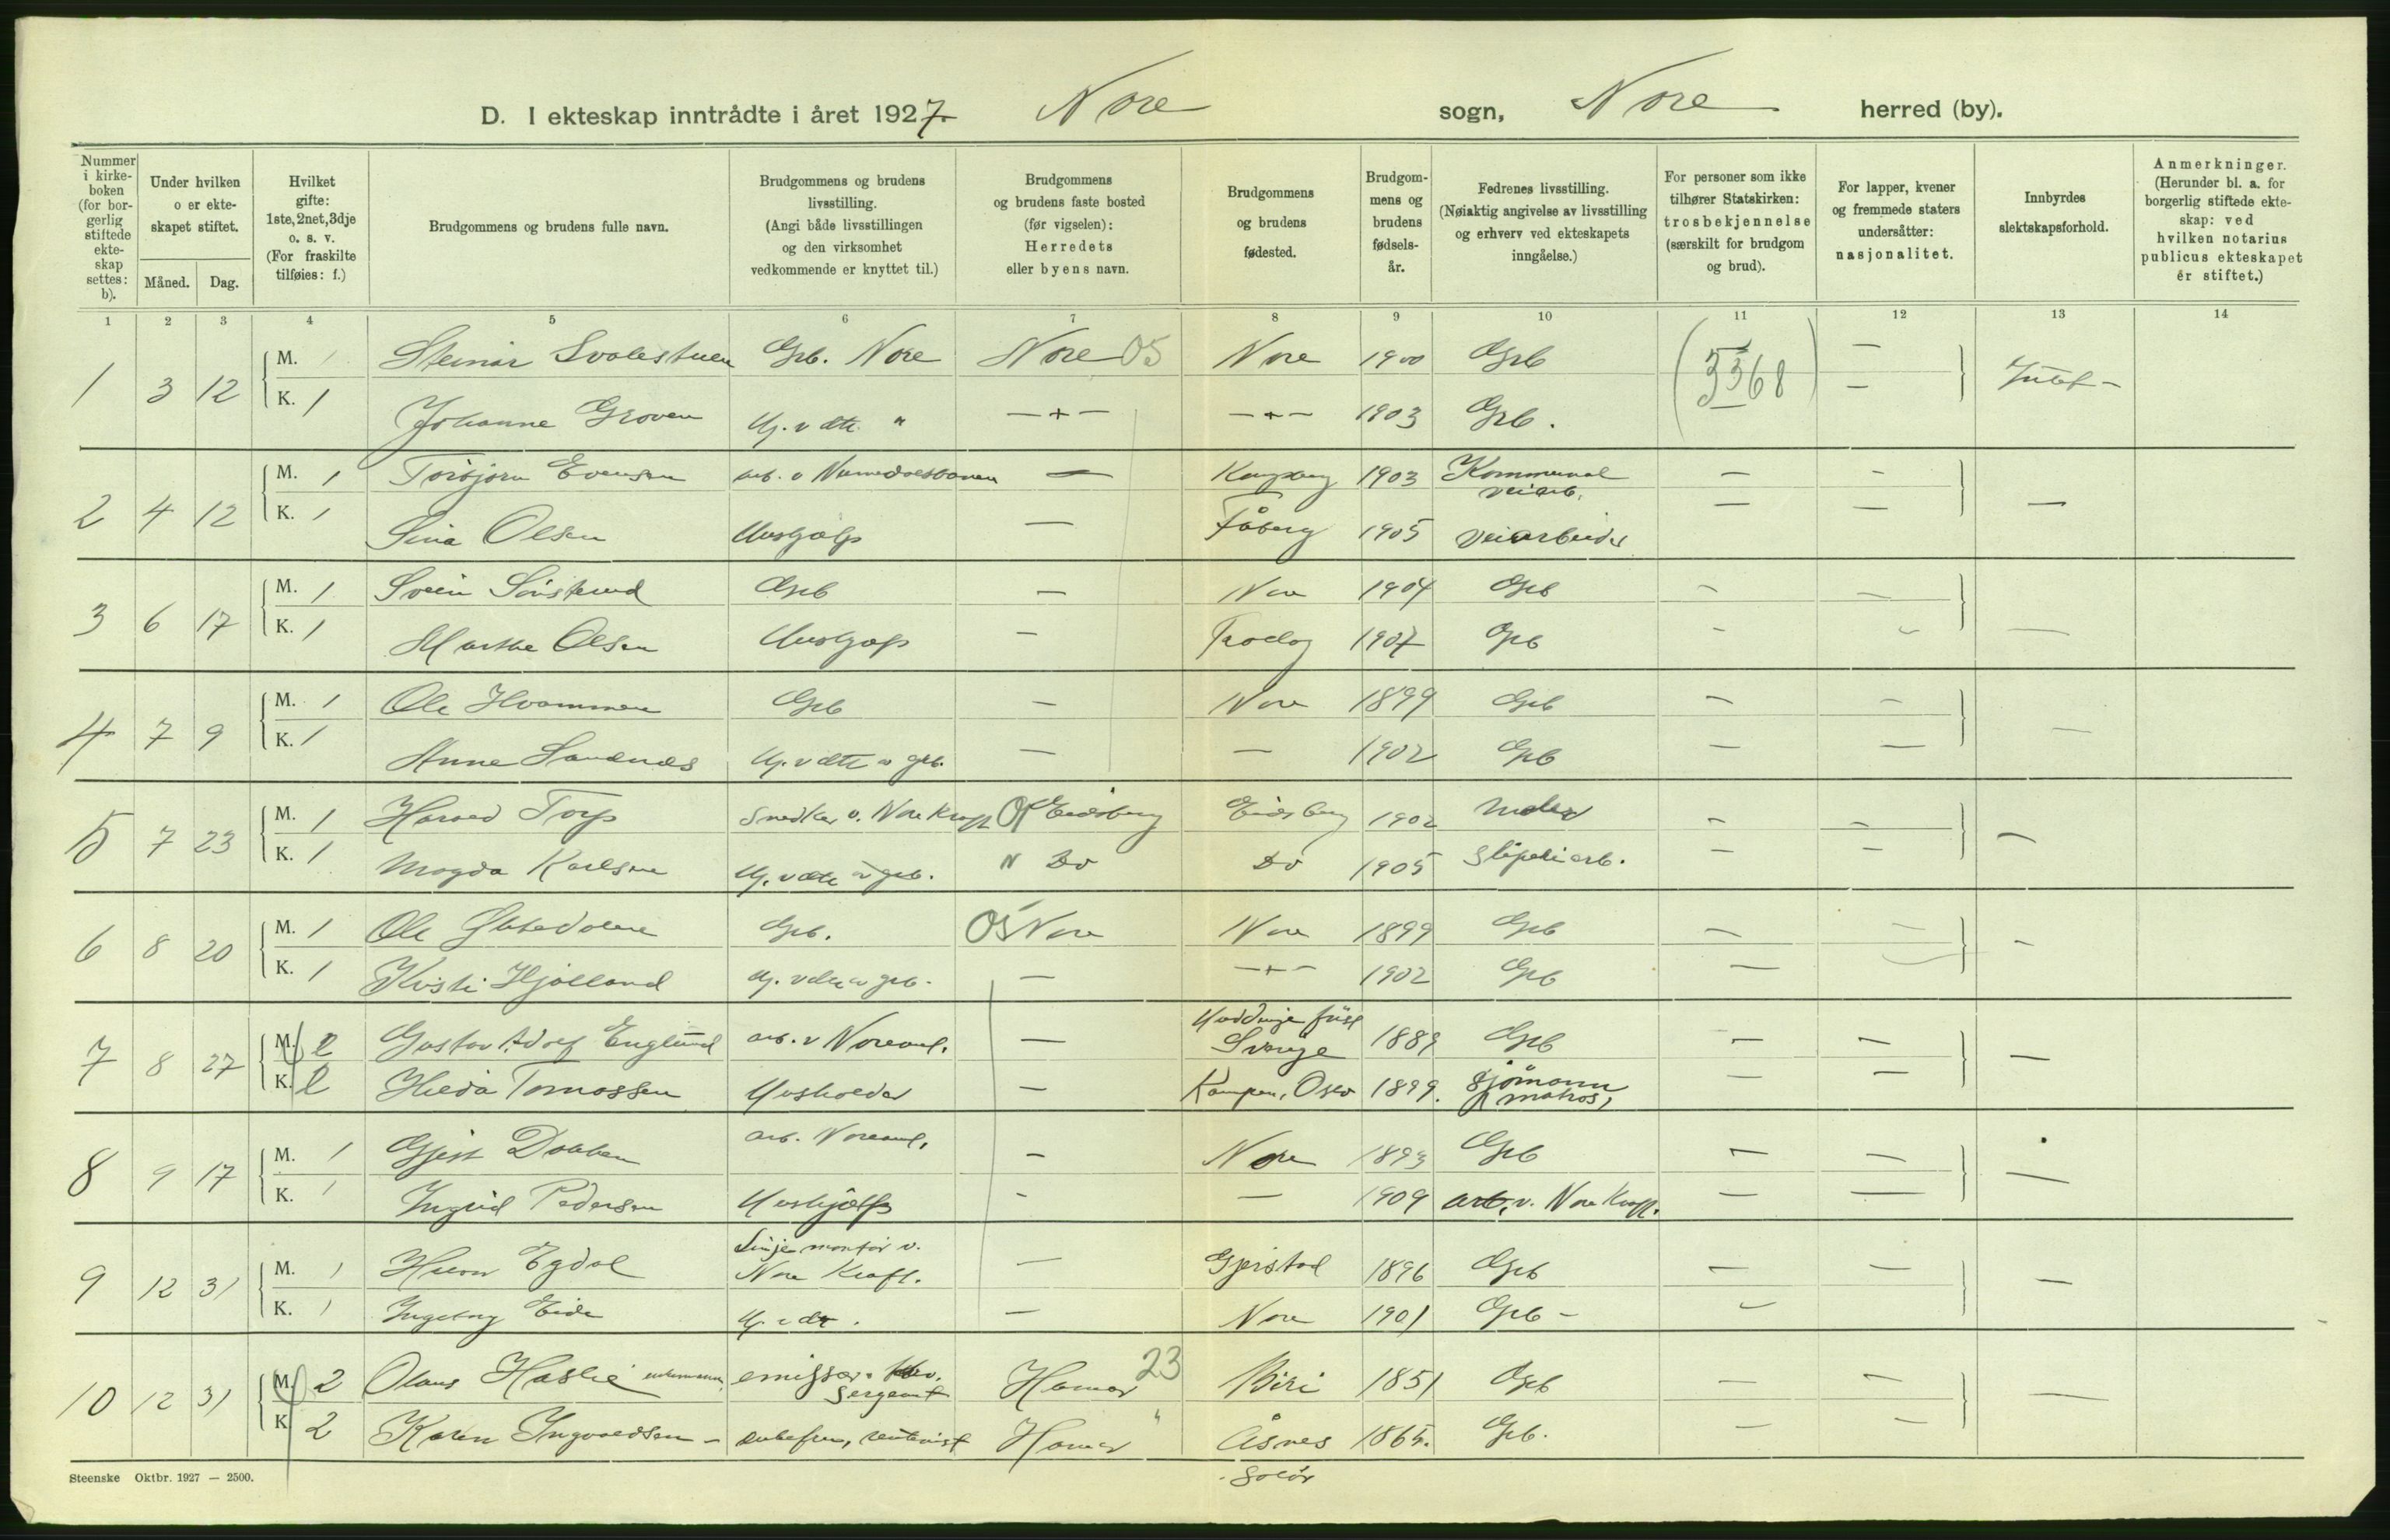 D. I ekteskap inntrådte i året 1927. Nore sogn, Nore herred (by).
Nummer i kirke-boken (for bor-gerlig stiftede ekte-skap settes: b).
Under hvilken o er ekte-skapet stiftet.
Måned. Dag.
Hvilket gifte: 1ste, 2net, 3dje o. s. v. (For fraskilte tilføies: f.)
Brudgommens og brudens fulle navn.
Brudgommens og brudens livsstilling. (Angi både livsstillingen og den virksomhet vedkommende er knyttet til.)
Brudgommens og brudens faste bosted (før vigselen): Herredets eller byens navn.
Brudgommens og brudens fødested.
Brudgom-mens og brudens fødsels-år.
Fedrenes livsstilling. (Nøiaktig angivelse av livsstilling og erhverv ved ekteskapets inngåelse.)
For personer som ikke tilhører Statskirken: trosbekjennelse (særskilt for brudgom og brud).
For lapper, kvener og fremmede staters undersåtter: nasjonalitet.
Innbyrdes slektskapsforhold.
Anmerkninger. (Herunder bl. a. for borgerlig stiftede ekte-skap: ved hvilken notarius publicus ekteskapet er stiftet.)
1 2 3 4 5 6 7 8 9 10 11 12 13 14
1 3 12 M. 1 Steinar Svalestuen Grb. Nore Nore 05 Nore 1900 Grb (5368) — —
K. 1 Johanne Groven Hj. v dtr. " —+— —+— 1903 Grb. —
2 4 12 M. 1 Torbjørn Evensen arb. v Numedalsbanen — Kongsberg 1903 Kommunal veiarb. — — —
K. 1 Lina Olsen Hushjelp — Fåberg 1905 Veiarbeider — —
3 6 17 M. 1 Svein Sønsterud Grb — Nore 1904 Grb — — —
K. 1 Marthe Olsen Hushjelp — 1907 Grb — —
4 7 9 M. 1 Ole Hvammen Grb — Nore 1899 Grb — — —
K. 1 Anne Sandnes Hj. v dtr av grb. — — 1902 Grb — —
5 7 23 M. 1 Harald Torp Snedker v. Nore Kraft 01 Eidsberg Eidsberg 1902 Maler — — —
K. 1 Magda Karlsen Hj. v dtr av grb. " Do Do 1905 Sliperiarb. — —
6 8 20 M. 1 Ole Grb. 05 Nore Nore 1899 Grb — — —
K. 1 Kristi Hjalland Hj. v dtr av grb. — —+— 1902 Grb —
7 8 27 M. 2 Gustav Adolf Englund arb. v Noreanl. — Huddinge Sverige 1889 Grb — — —
K. 2 Hilda Tomassen Husholder — Kampen, Oslo 1899. Sjømann (matros) — —
8 9 17 M. 1 Gjest Dokken arb. Noreanl. — Nore 1893 Grb — — —
K. 1 Ingrid Pedersen Hushjelp — — 1909 arb. v. Nore Kraft. — —
9 12 31 M. 1 Egdal Linjemontør v. Nore Kraft. — Gjerstad 1896 Grb — — —
K. 1 Ingeborg Eide Hj. v dtr. — Nore 1901 Grb —
10 12 31 M. 2 Olaus Haslie enkemann, emissær Sergeant Hamar 23 Biri 1851 Grb — — —
K 2 Karen Ingvaldsen — enkefru, rentenist Hamar " Åsnes 1865. Grb. — —
Solør
Steenske Oktbr. 1927 — 2500.